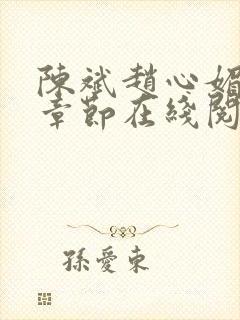 陳斌趙心媚
章節在綫閱
孫愛東